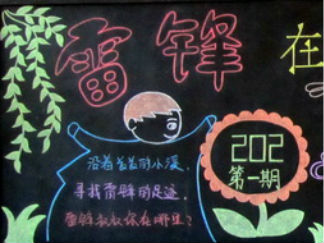 雷锋在
沿着长长的小溪，
寻找雷锋的足迹，
雷锋叔叔你在哪里？
202
第一期